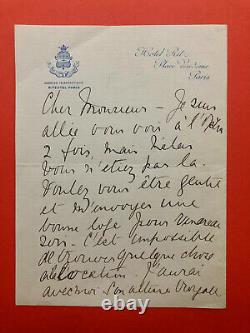 Hôtel Ritz
Place Vendôme
Paris
RITZOTEL PARIS
Cher Monsieur - Je suis
allée vous voir à l'Opéra
2 fois, mais hélas
vous n'étiez pas là.
Voulez vous être gentil
et m'envoyer une
bonne loge pour Vendredi
soir - C'est impossible
de trouver quelque chose
à location. J'aurai
avec moi son altesse royale